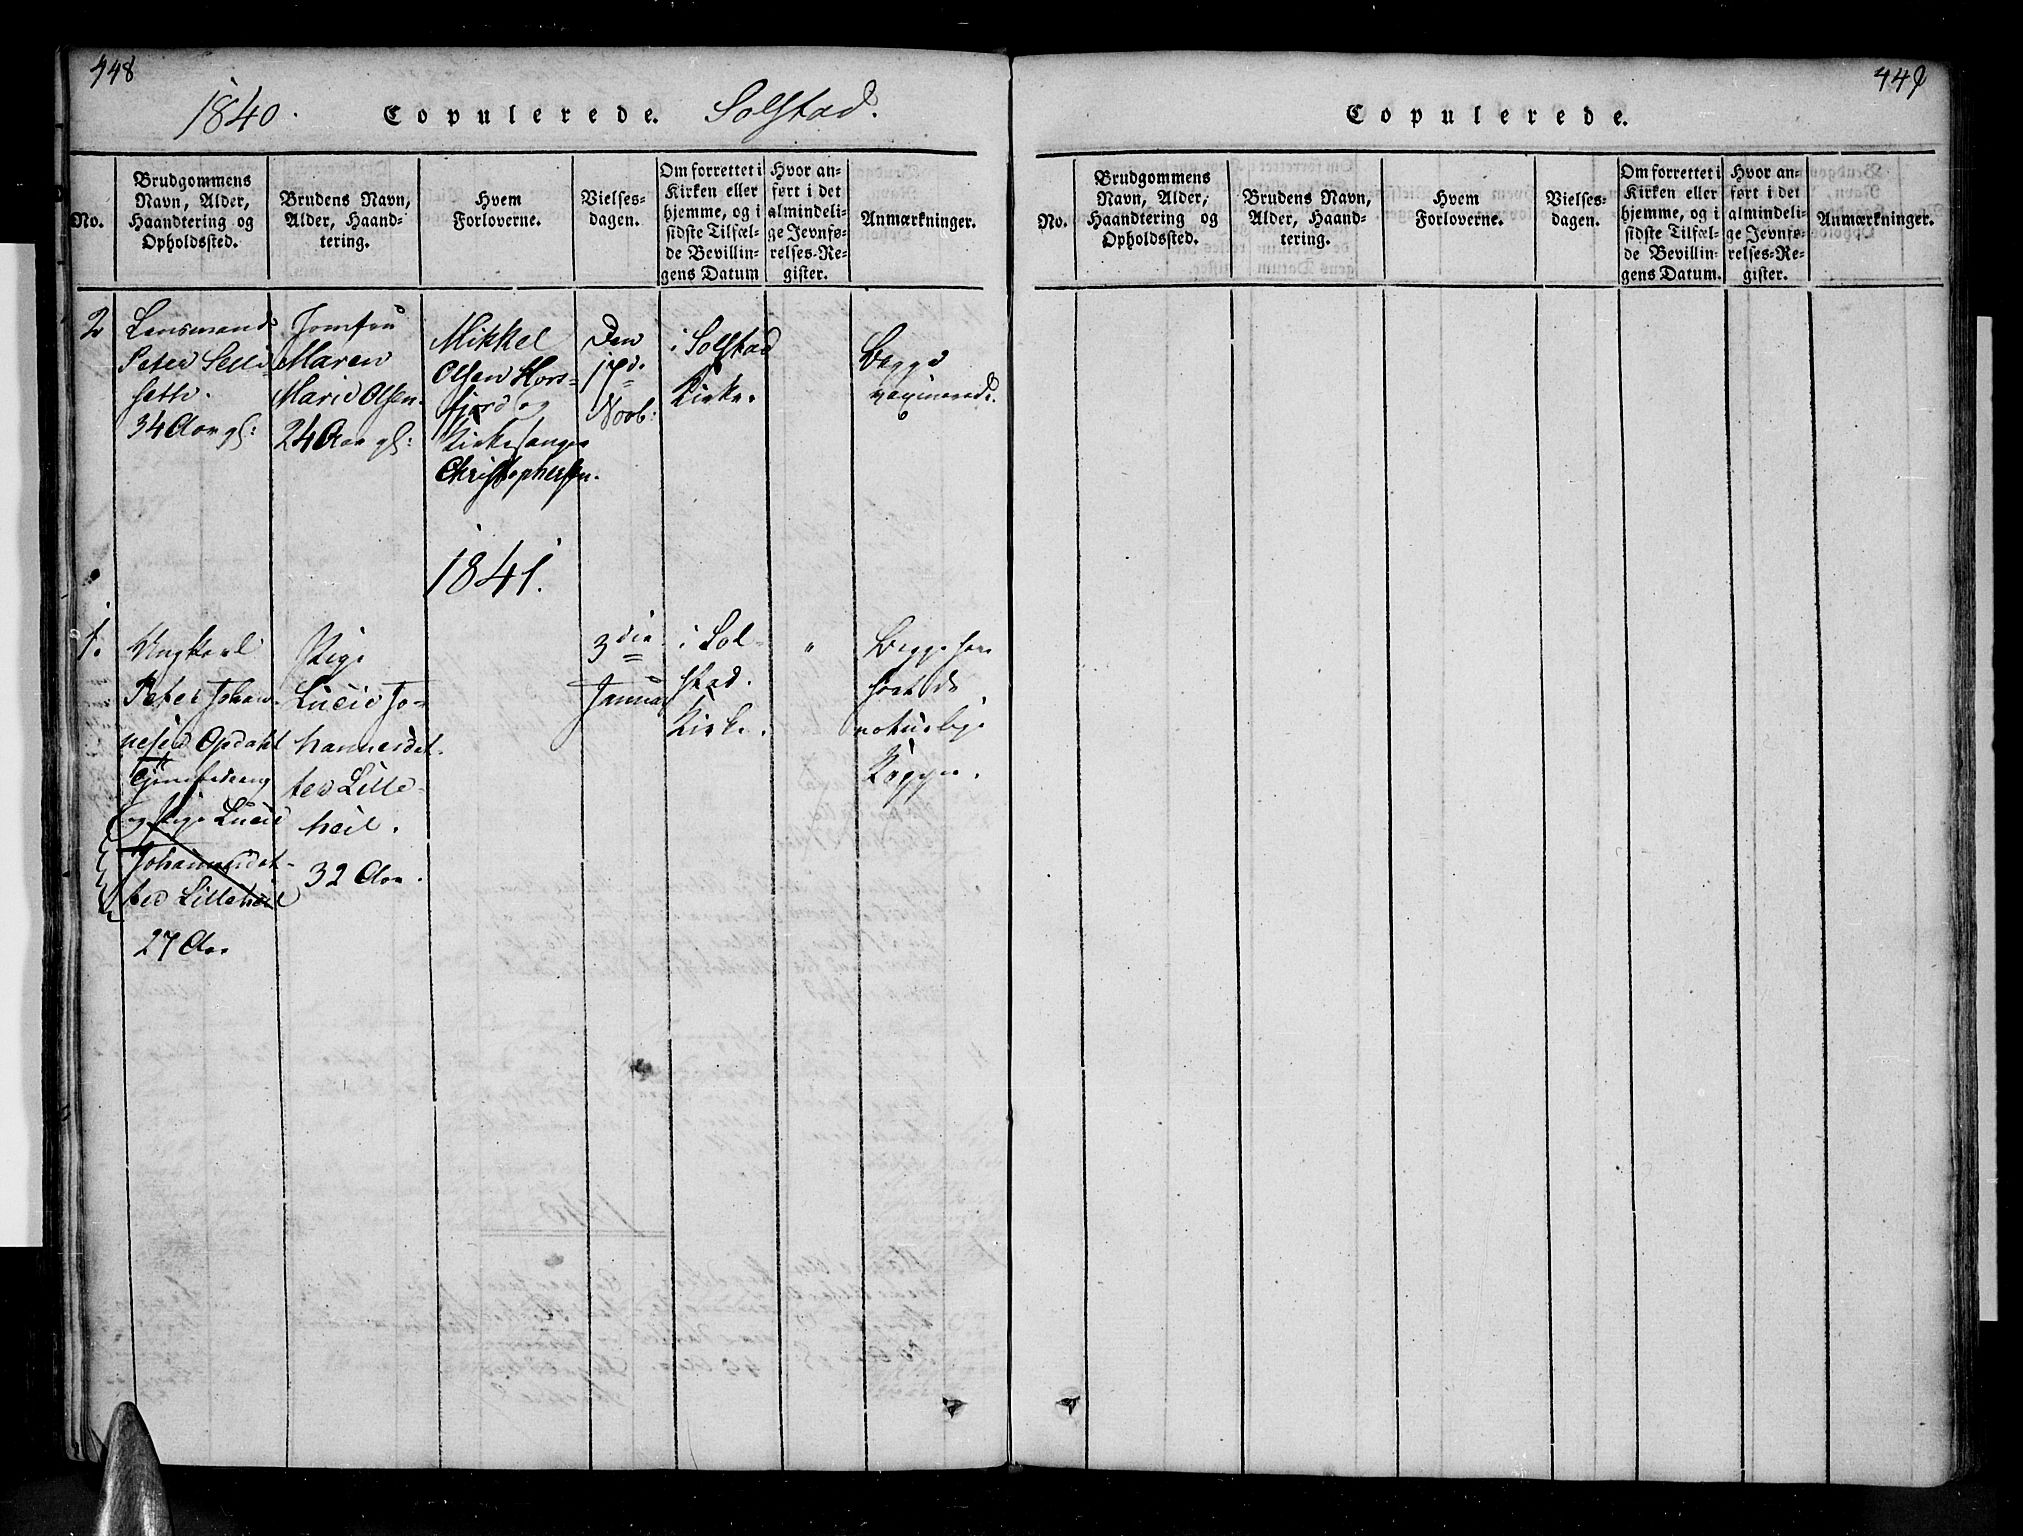 448
1840. Copulerede. Solstad.
No.
Brudgommens
Navn, Alder,
Haandtering og
Opholdssted.
Brudens Navn,
Alder, Haand-
tering.
Hvem
Forloverne.
Vielses-
dagen.
Om forrettet i
Kirken eller
hjemme, og i
sidste Tilfæl-
de Bevillin-
gens Datum
Hvor an-
ført i det
almindeli-
ge Jevnfø-
relses-Re-
gister.
Anmærkninger.
2
Lensmand
Peter Selli
seth.
34 Aar gl:
Jomfru
Maren
Marie Olsen.
24 Aar gl:
Mikkel
Olsen Hors-
fjord og
Kirkesanger
Christophersen.
Den
Novb:
i Solstad
Kirke.
Begge
vaxinerede.
1841.
1.
Ungkarl
Peter Johan-
nesen Opdahl
og Pige Lucie
Johannesdat-
ter Lilleheil
27 Aar
Pige
Lucie Jo-
hannesdat-
ter Lille-
heil.
32 Aar.
3die
Januar
i Sol-
stad.
Kirke.
"
Begge have
havt de
naturlige
Kopper.
449
Copulerede.
No.
Brudgommens
Navn, Alder,
Haandtering og
Opholdssted.
Brudens Navn,
Alder, Haand-
tering.
Hvem
Forloverne.
Vielses-
dagen.
Om forrettet i
Kirken eller
hjemme, og i
sidste Tilfæl-
de Bevillin-
gens Datum.
Hvor an-
ført i det
almindeli-
ge Jevnfø-
relses-Re-
gister.
Anmærkninger.